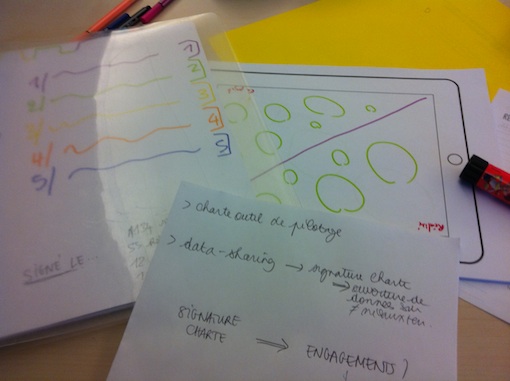 1
2
3
4
5
1/
2/
3/
4/
5/
SIGNÉ LE...
> charte outil de pilotage
> data-sharing → signature charte
→ ouverture de
données sur
SIGNATURE
CHARTE
⇒ ENGAGEMENTS ?
↓